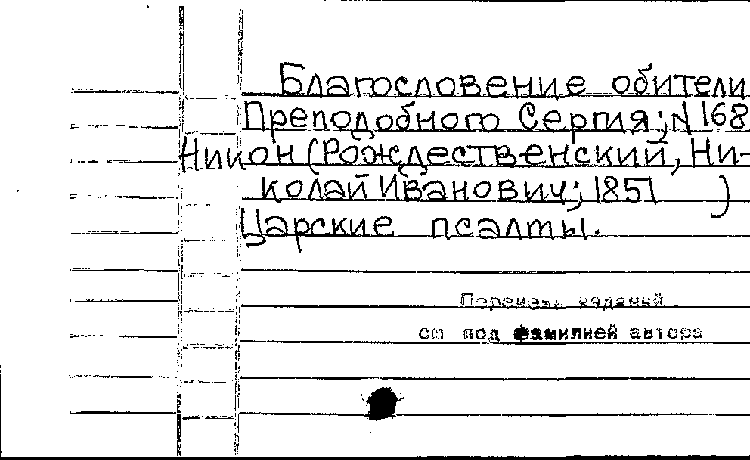 Благословение обители
Преподобного Сергия; N 168
Никон (Рождественский, Ни-
колай Иванович; 1851 )
Царские псалты.
Перечень изданий
см под фамилией автора